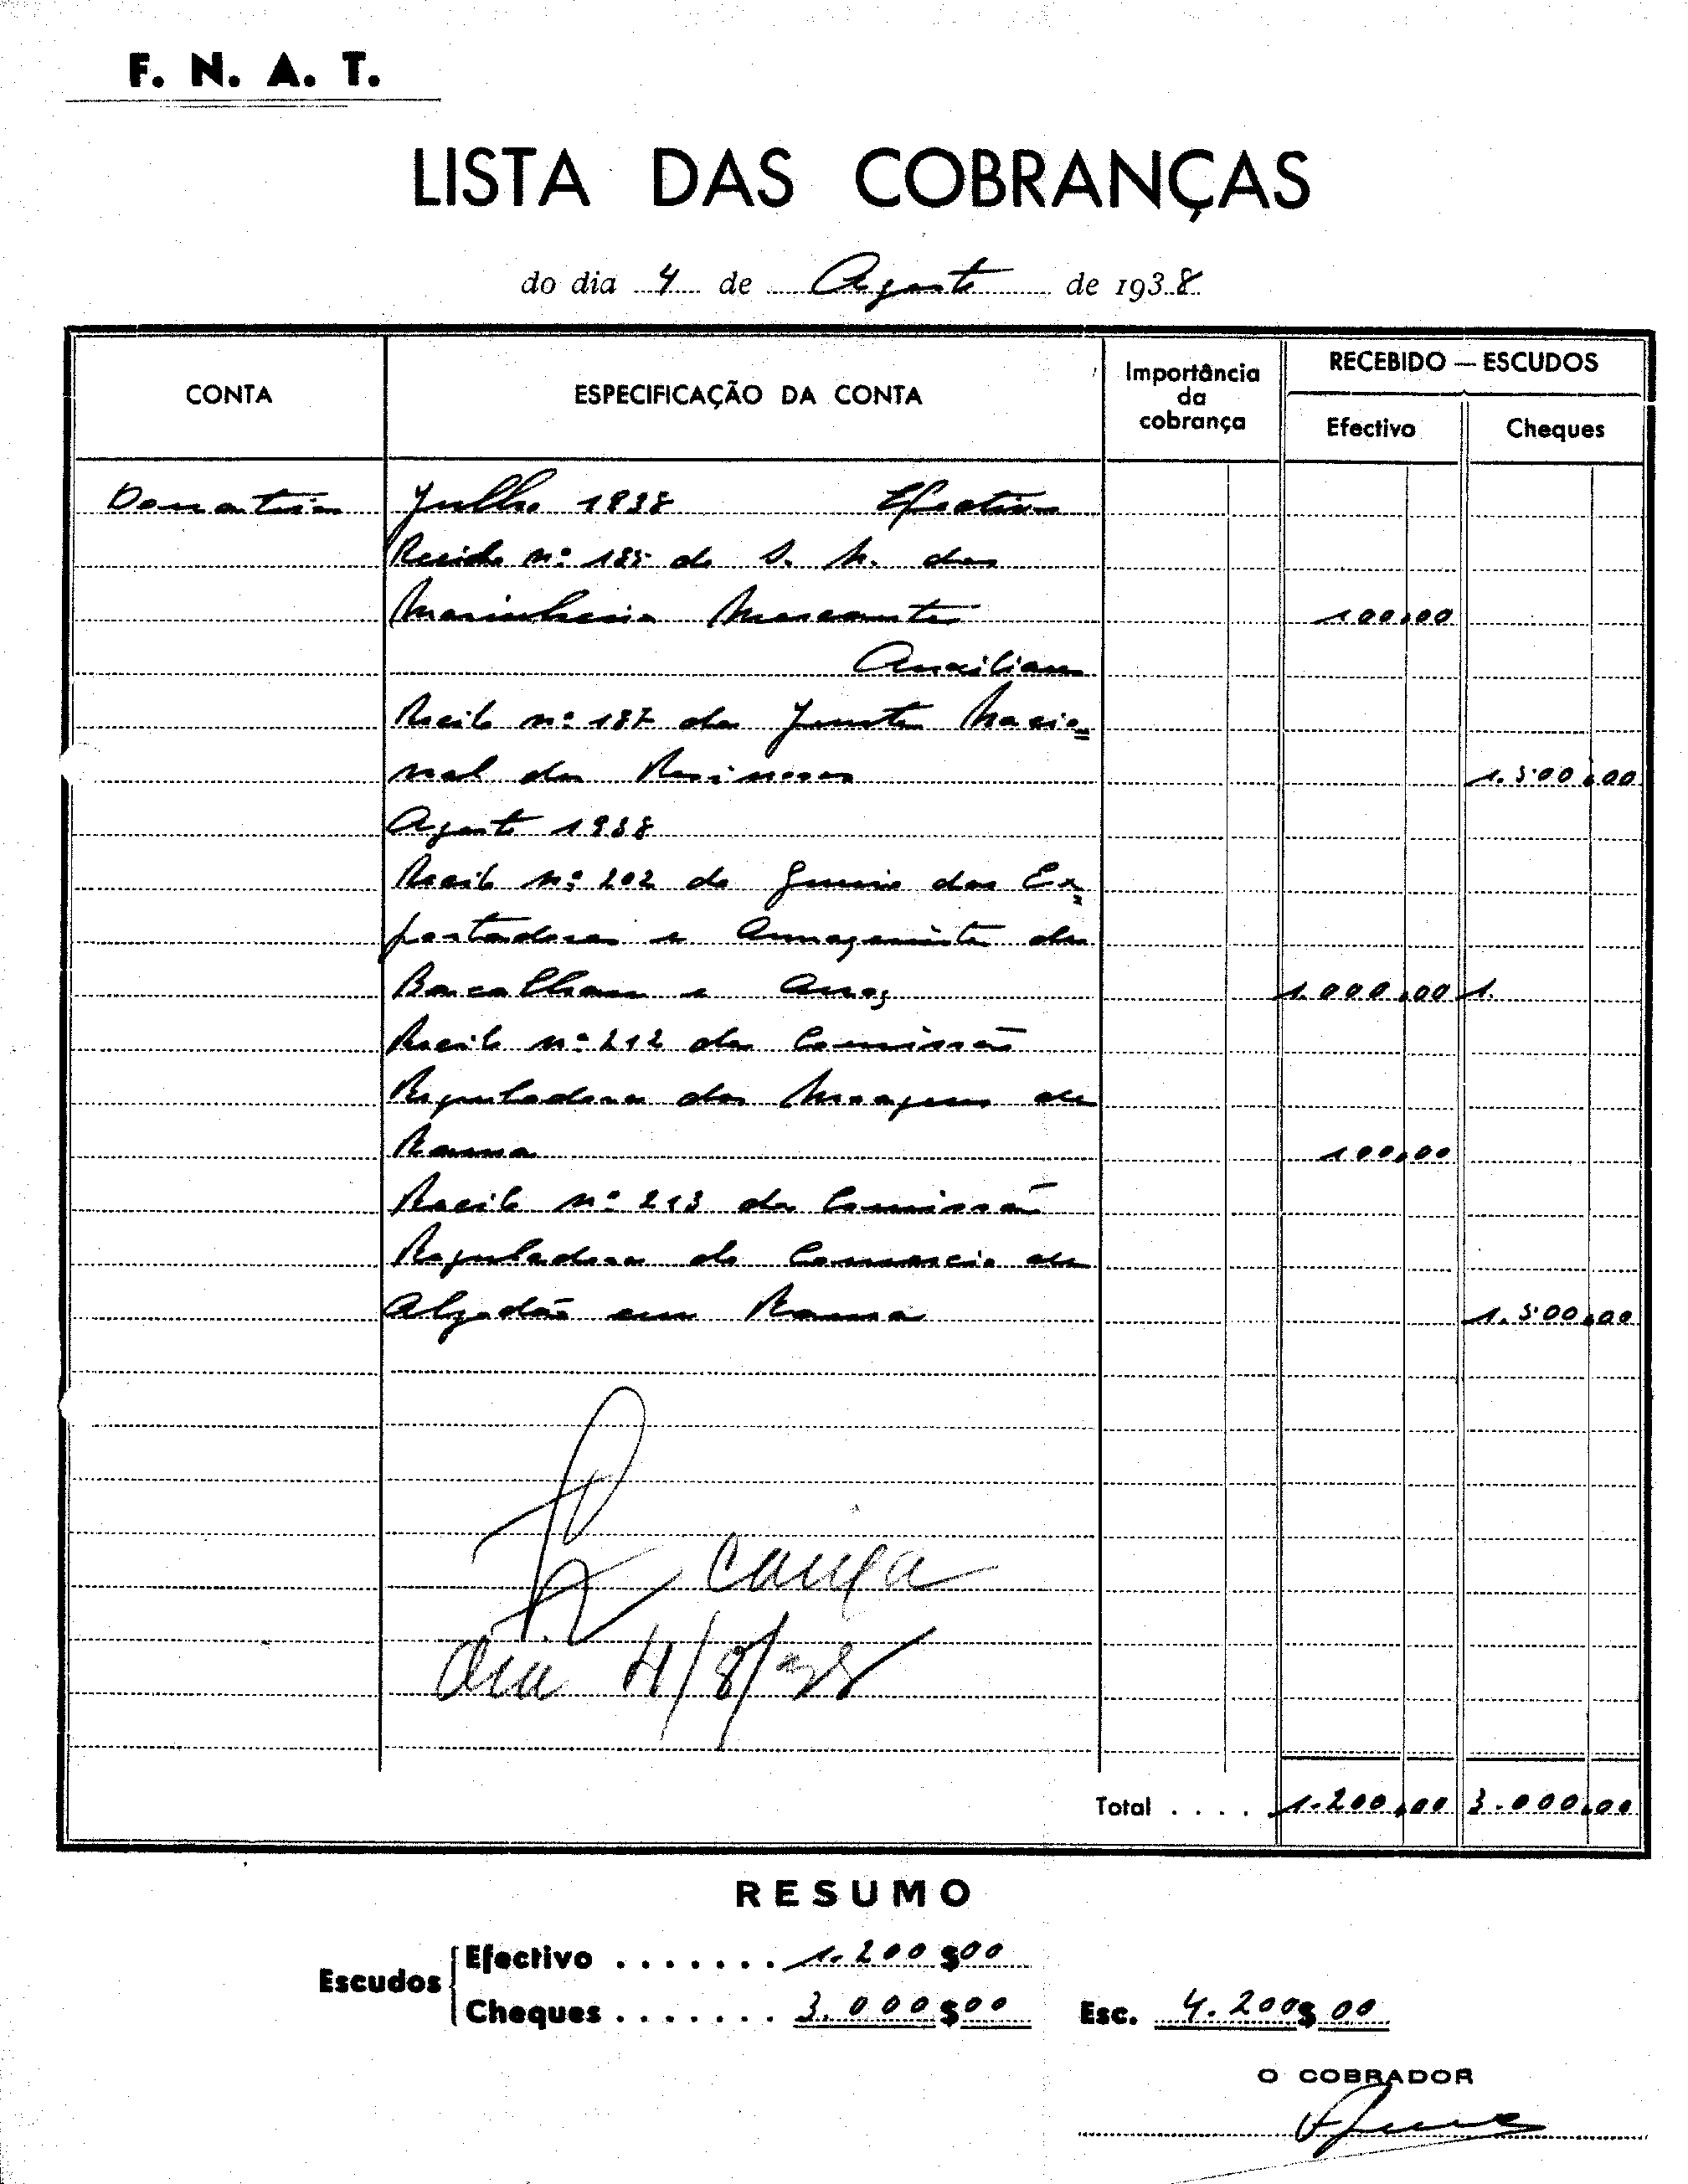 F. N. A. T.
LISTA DAS COBRANÇAS
do dia 4 de Agosto de 1938
CONTA
ESPECIFICAÇÃO DA CONTA
Importância
da
cobrança
RECEBIDO — ESCUDOS
Efectivo
Cheques
Donativos Julho 1938 Efectivos
Recibo nº 185 do S. N. dos
Marinheiros Mercantes 100,00
Auxiliares
Recibo nº 187 da Junta Nacio=
nal dos Resinosos 1.500,00
Agosto 1938
Recibo nº 202 do Gremio dos Ex=
portadores e Armazenistas de
Bacalhau e Arroz 1.000,00 1.
Recibo nº 212 da Comissão
Reguladora das Moagens de
Rama 100,00
Recibo nº 213 da Comissão
Reguladora do Comercio de
Algodão em Rama 1.500,00
caixa
dia 4/8/38
Total .... 1.200,00 3.000,00
RESUMO
Escudos
Efectivo ....... 1.200$00
Cheques ....... 3.000$00 Esc. 4.200$00
O COBRADOR